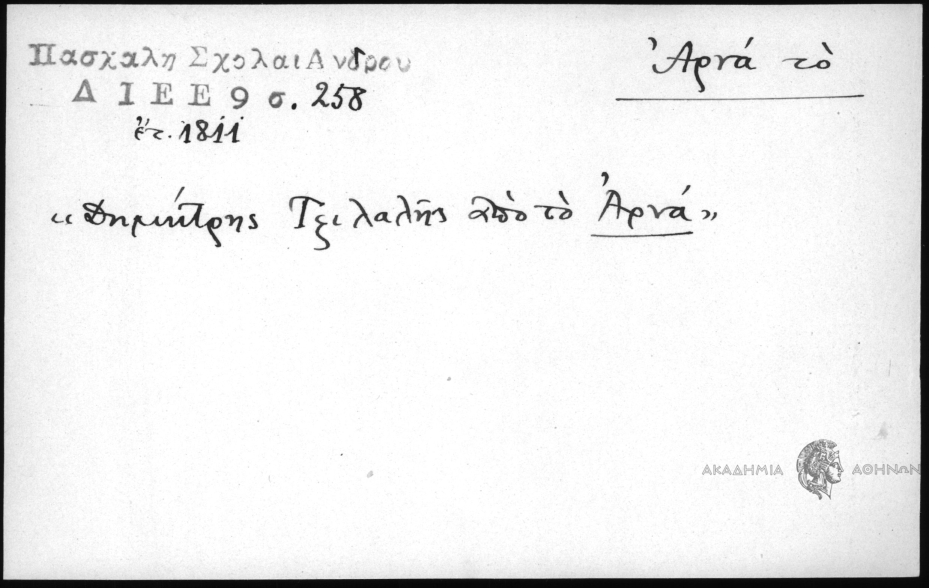 Πασχαλη Σχολαι Ανδρου
Ἀρνά τὸ
ΔΙΕΕ 9 σ. 258
ἔτ. 1811
«Δημήτρης Τζιλαλῆς ἀπὸ τὸ Ἀρνά»
ΑΚΑΔΗΜΙΑ ΑΘΗΝΩΝ